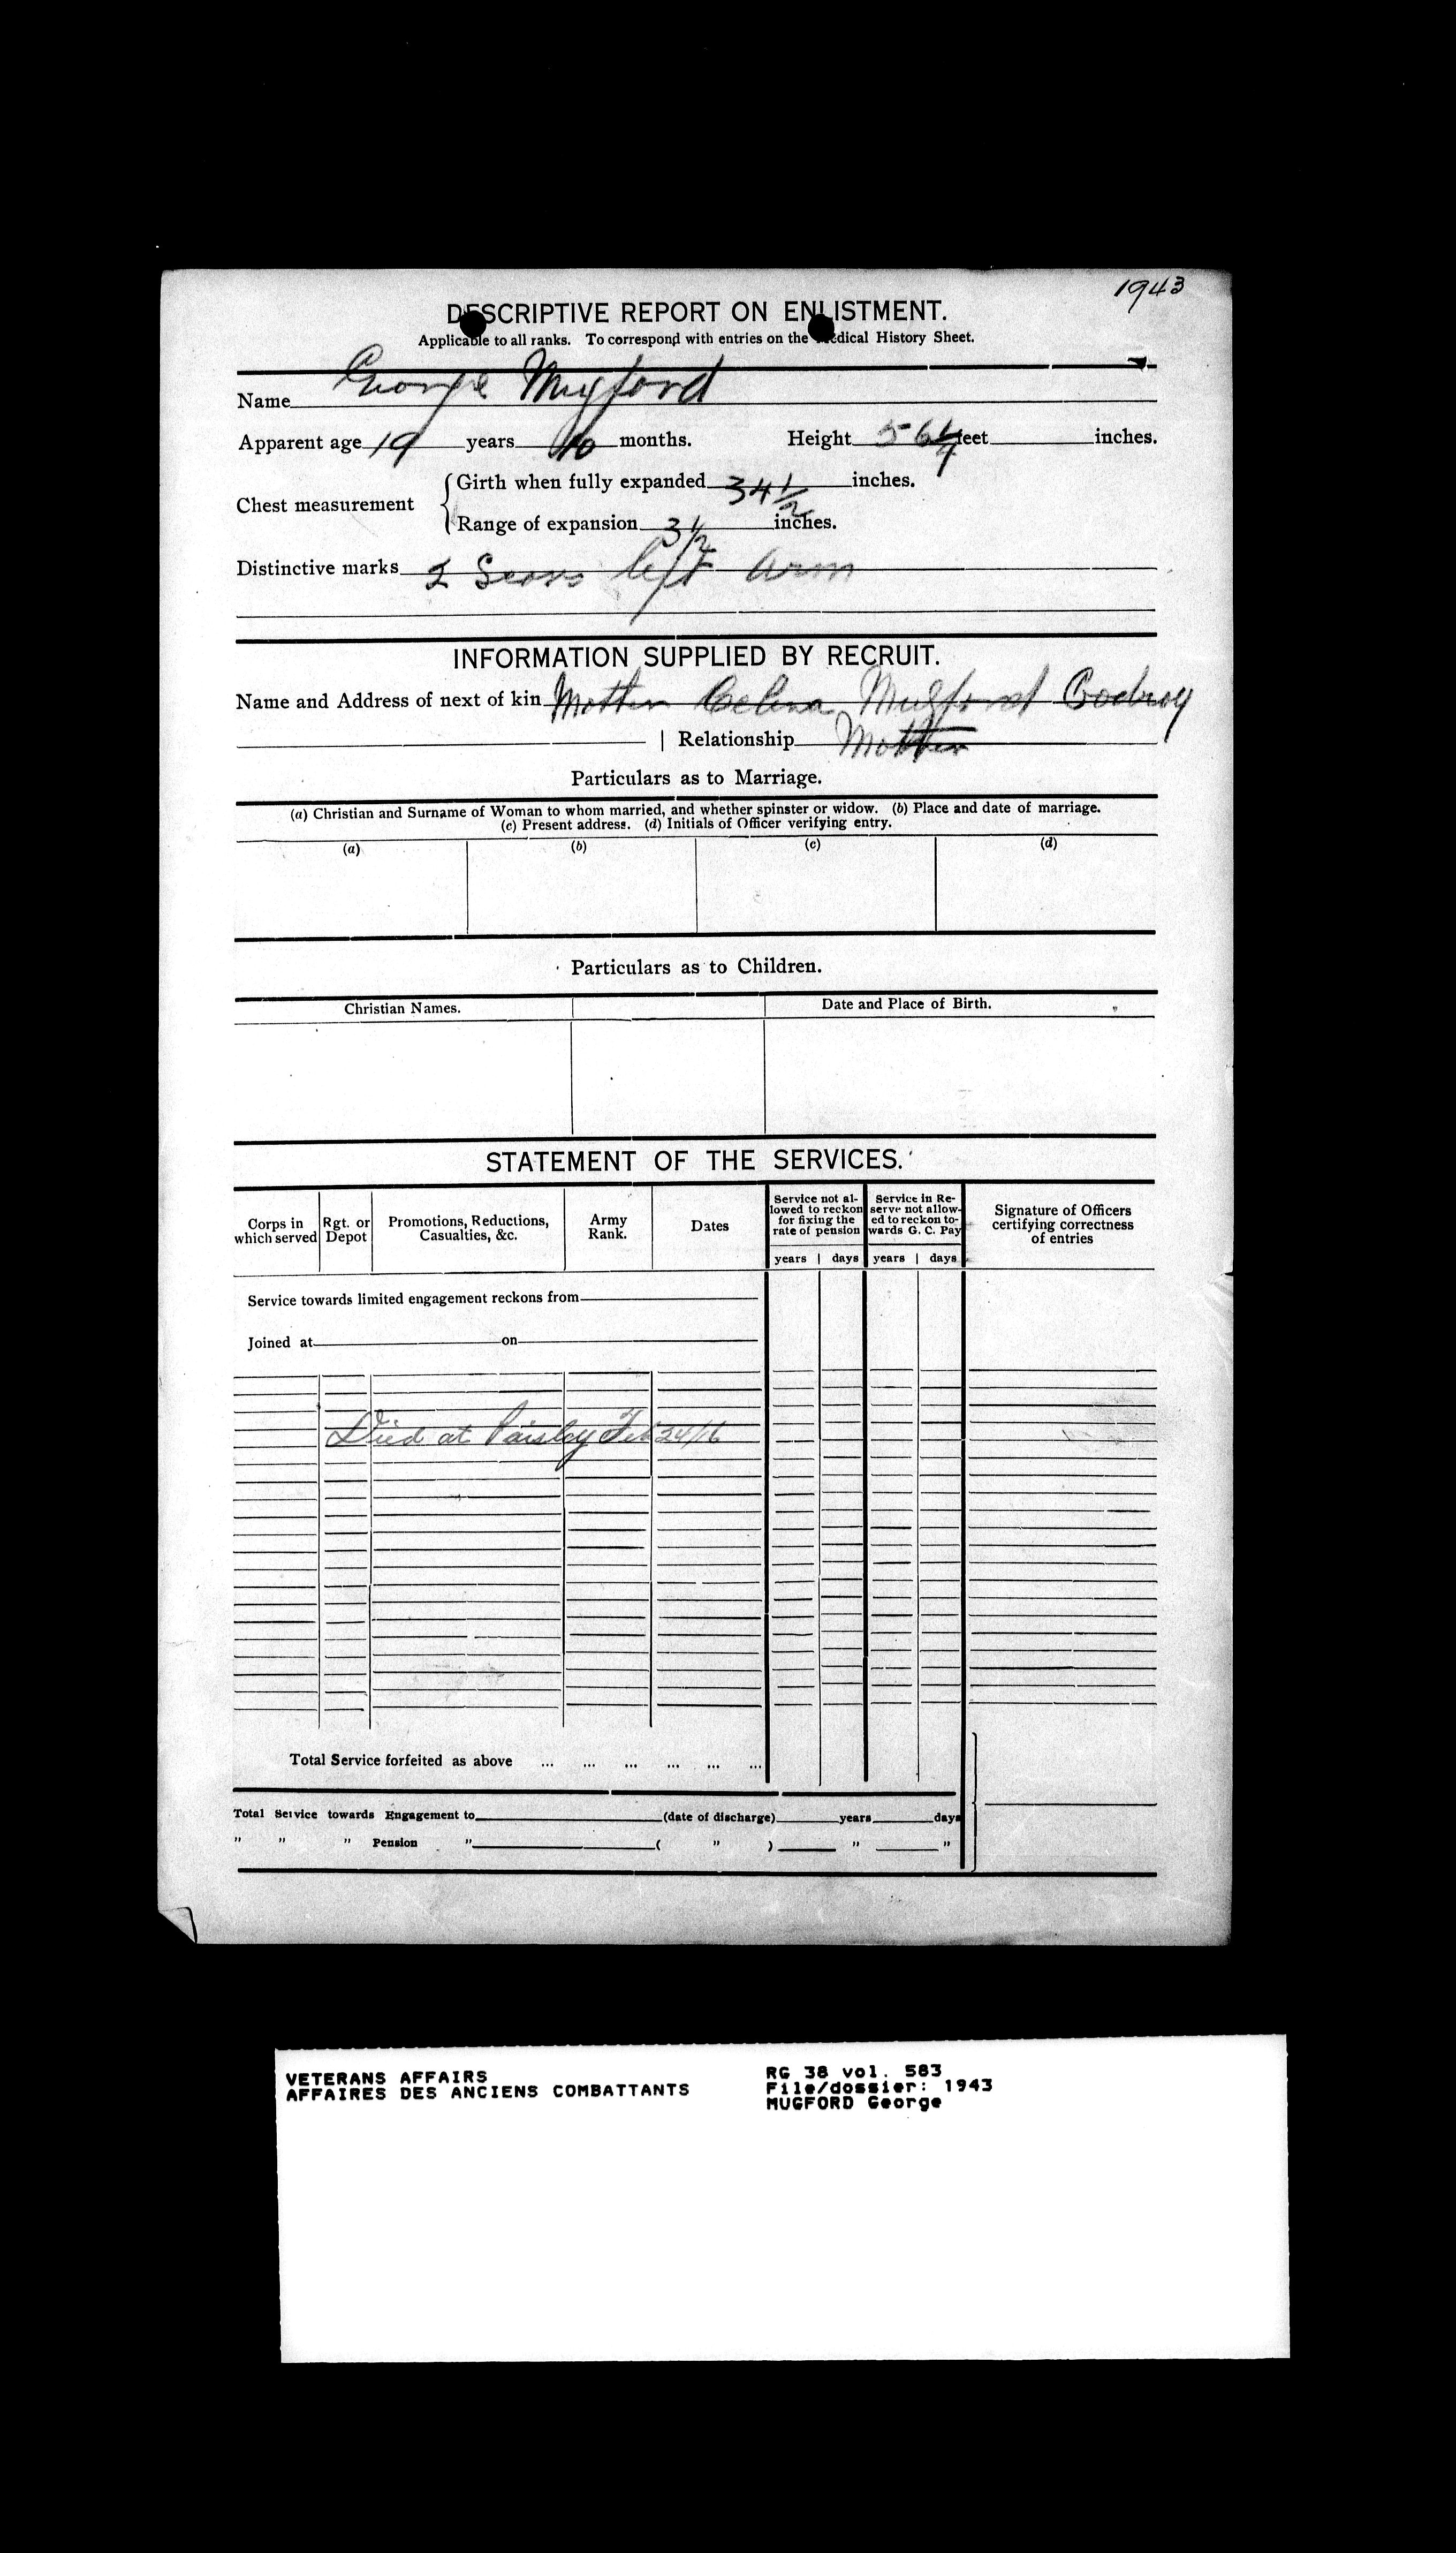 1943
DESCRIPTIVE REPORT ON ENLISTMENT.
Applicable to all ranks. To correspond with entries on the Medical History Sheet.
Name George Mugford
Apparent age 19 years 10 months. Height 5 6 1/4 feet inches.
Chest measurement { Girth when fully expanded 34 1/2 inches.
Range of expansion 3 1/2 inches.
Distinctive marks 2 Scars left arm
INFORMATION SUPPLIED BY RECRUIT.
Name and Address of next of kin Mother Celina Mugford Codroy
| Relationship Mother
Particulars as to Marriage.
(a) Christian and Surname of Woman to whom married, and whether spinster or widow. (b) Place and date of marriage.
(c) Present address. (d) Initials of Officer verifying entry.
(a) (b) (c) (d)
Particulars as to Children.
Christian Names. Date and Place of Birth.
STATEMENT OF THE SERVICES.
Corps in which served Rgt. or Depot Promotions, Reductions, Casualties, &c. Army Rank. Dates Service not allowed to reckon for fixing the rate of pension Service in Reserve not allowed to reckon towards G. C. Pay Signature of Officers certifying correctness of entries
years | days years | days
Service towards limited engagement reckons from
Joined at on
Died at Paisley Feb 24/16
Total Service forfeited as above ... ... ... ... ... ...
Total Service towards Engagement to (date of discharge) years days
" " " Pension " ( " ) " "
VETERANS AFFAIRS
AFFAIRES DES ANCIENS COMBATTANTS
RG 38 vol. 583
File/dossier: 1943
MUGFORD George